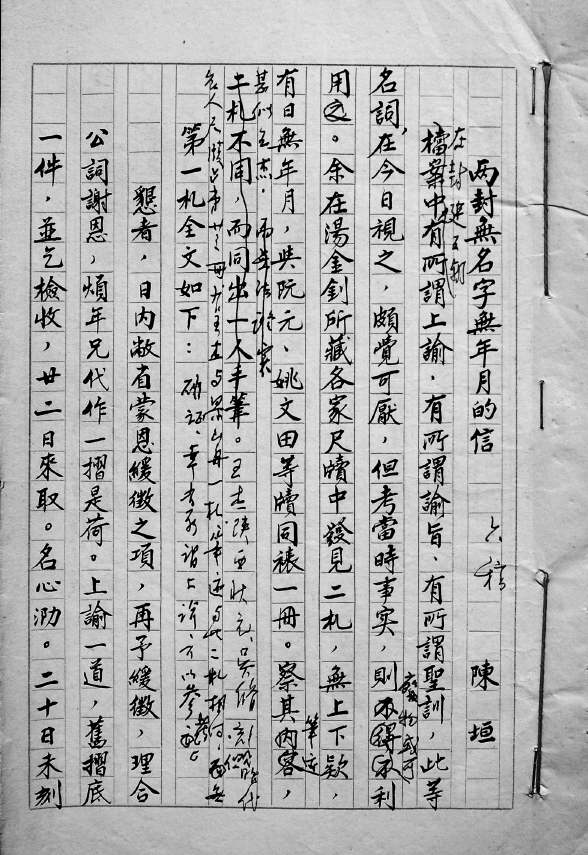 两封無名字無年月的信 六稿 陳垣
在封建王朝
檔案中有所謂上諭、有所謂諭旨、有所謂聖訓，此等
名詞，在今日視之，頗覺可厭，但考當時事实，則廢物或可利
用之。余在湯金釗所藏各家尺牘中發見二札，無上下欵，
有日無年月，與阮元、姚文田等牘同裱一冊。察其筆迹
二札不同，而同出一人手筆。
第一札全文如下：
懇者，日内敝省蒙恩緩徵之項，再予緩徵，理合
公詞謝恩，煩年兄代作一摺是荷。上諭一道，舊摺底
一件，並乞檢收，廿二日來取。名心泐。二十日未刻